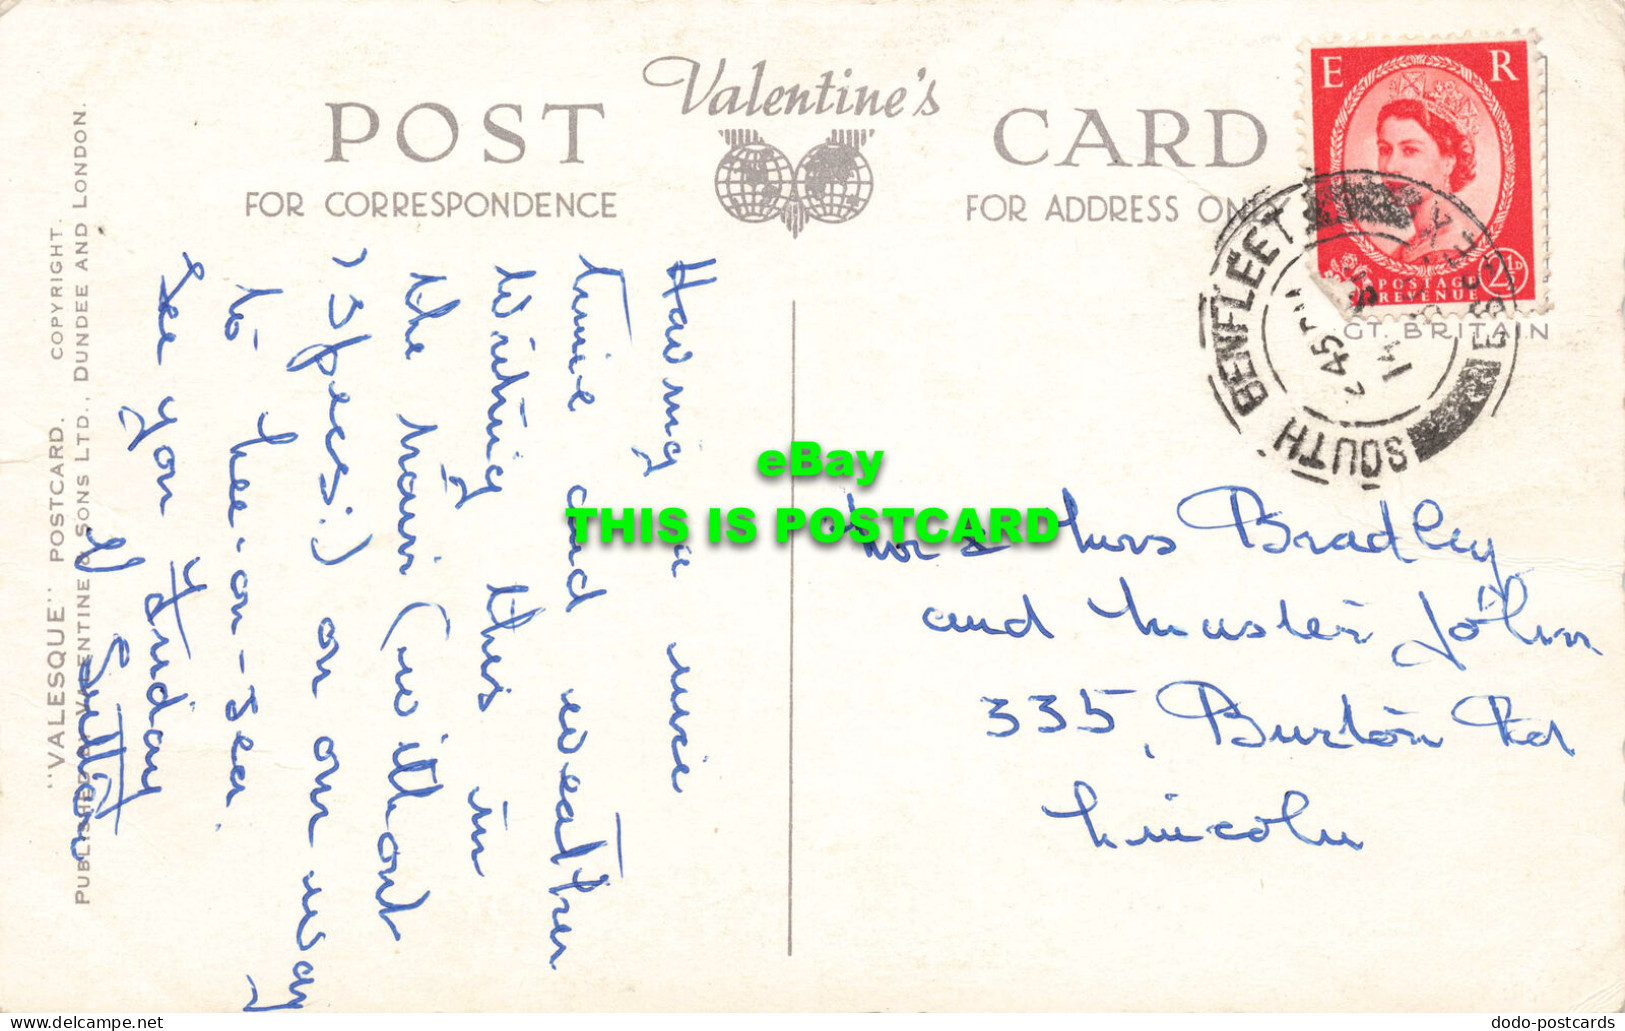 POST Valentine's CARD
FOR CORRESPONDENCE
FOR ADDRESS ON
E R
POSTAGE
REVENUE
2½D
GT. BRITAIN
SOUTH BENFLEET
45 PM
"VALESQUE" POSTCARD. COPYRIGHT.
PUBLISHED BY VALENTINE & SONS LTD., DUNDEE AND LONDON.
Having a nice
time and weather
Writing this in
the train (without
specs!) on our way
to Lee-on-Sea
See you Friday
Sutton
Mr & Mrs Bradley
and Master John
335, Burton Rd
Lincoln
eBay
THIS IS POSTCARD
dodo-postcards
www.delcampe.net